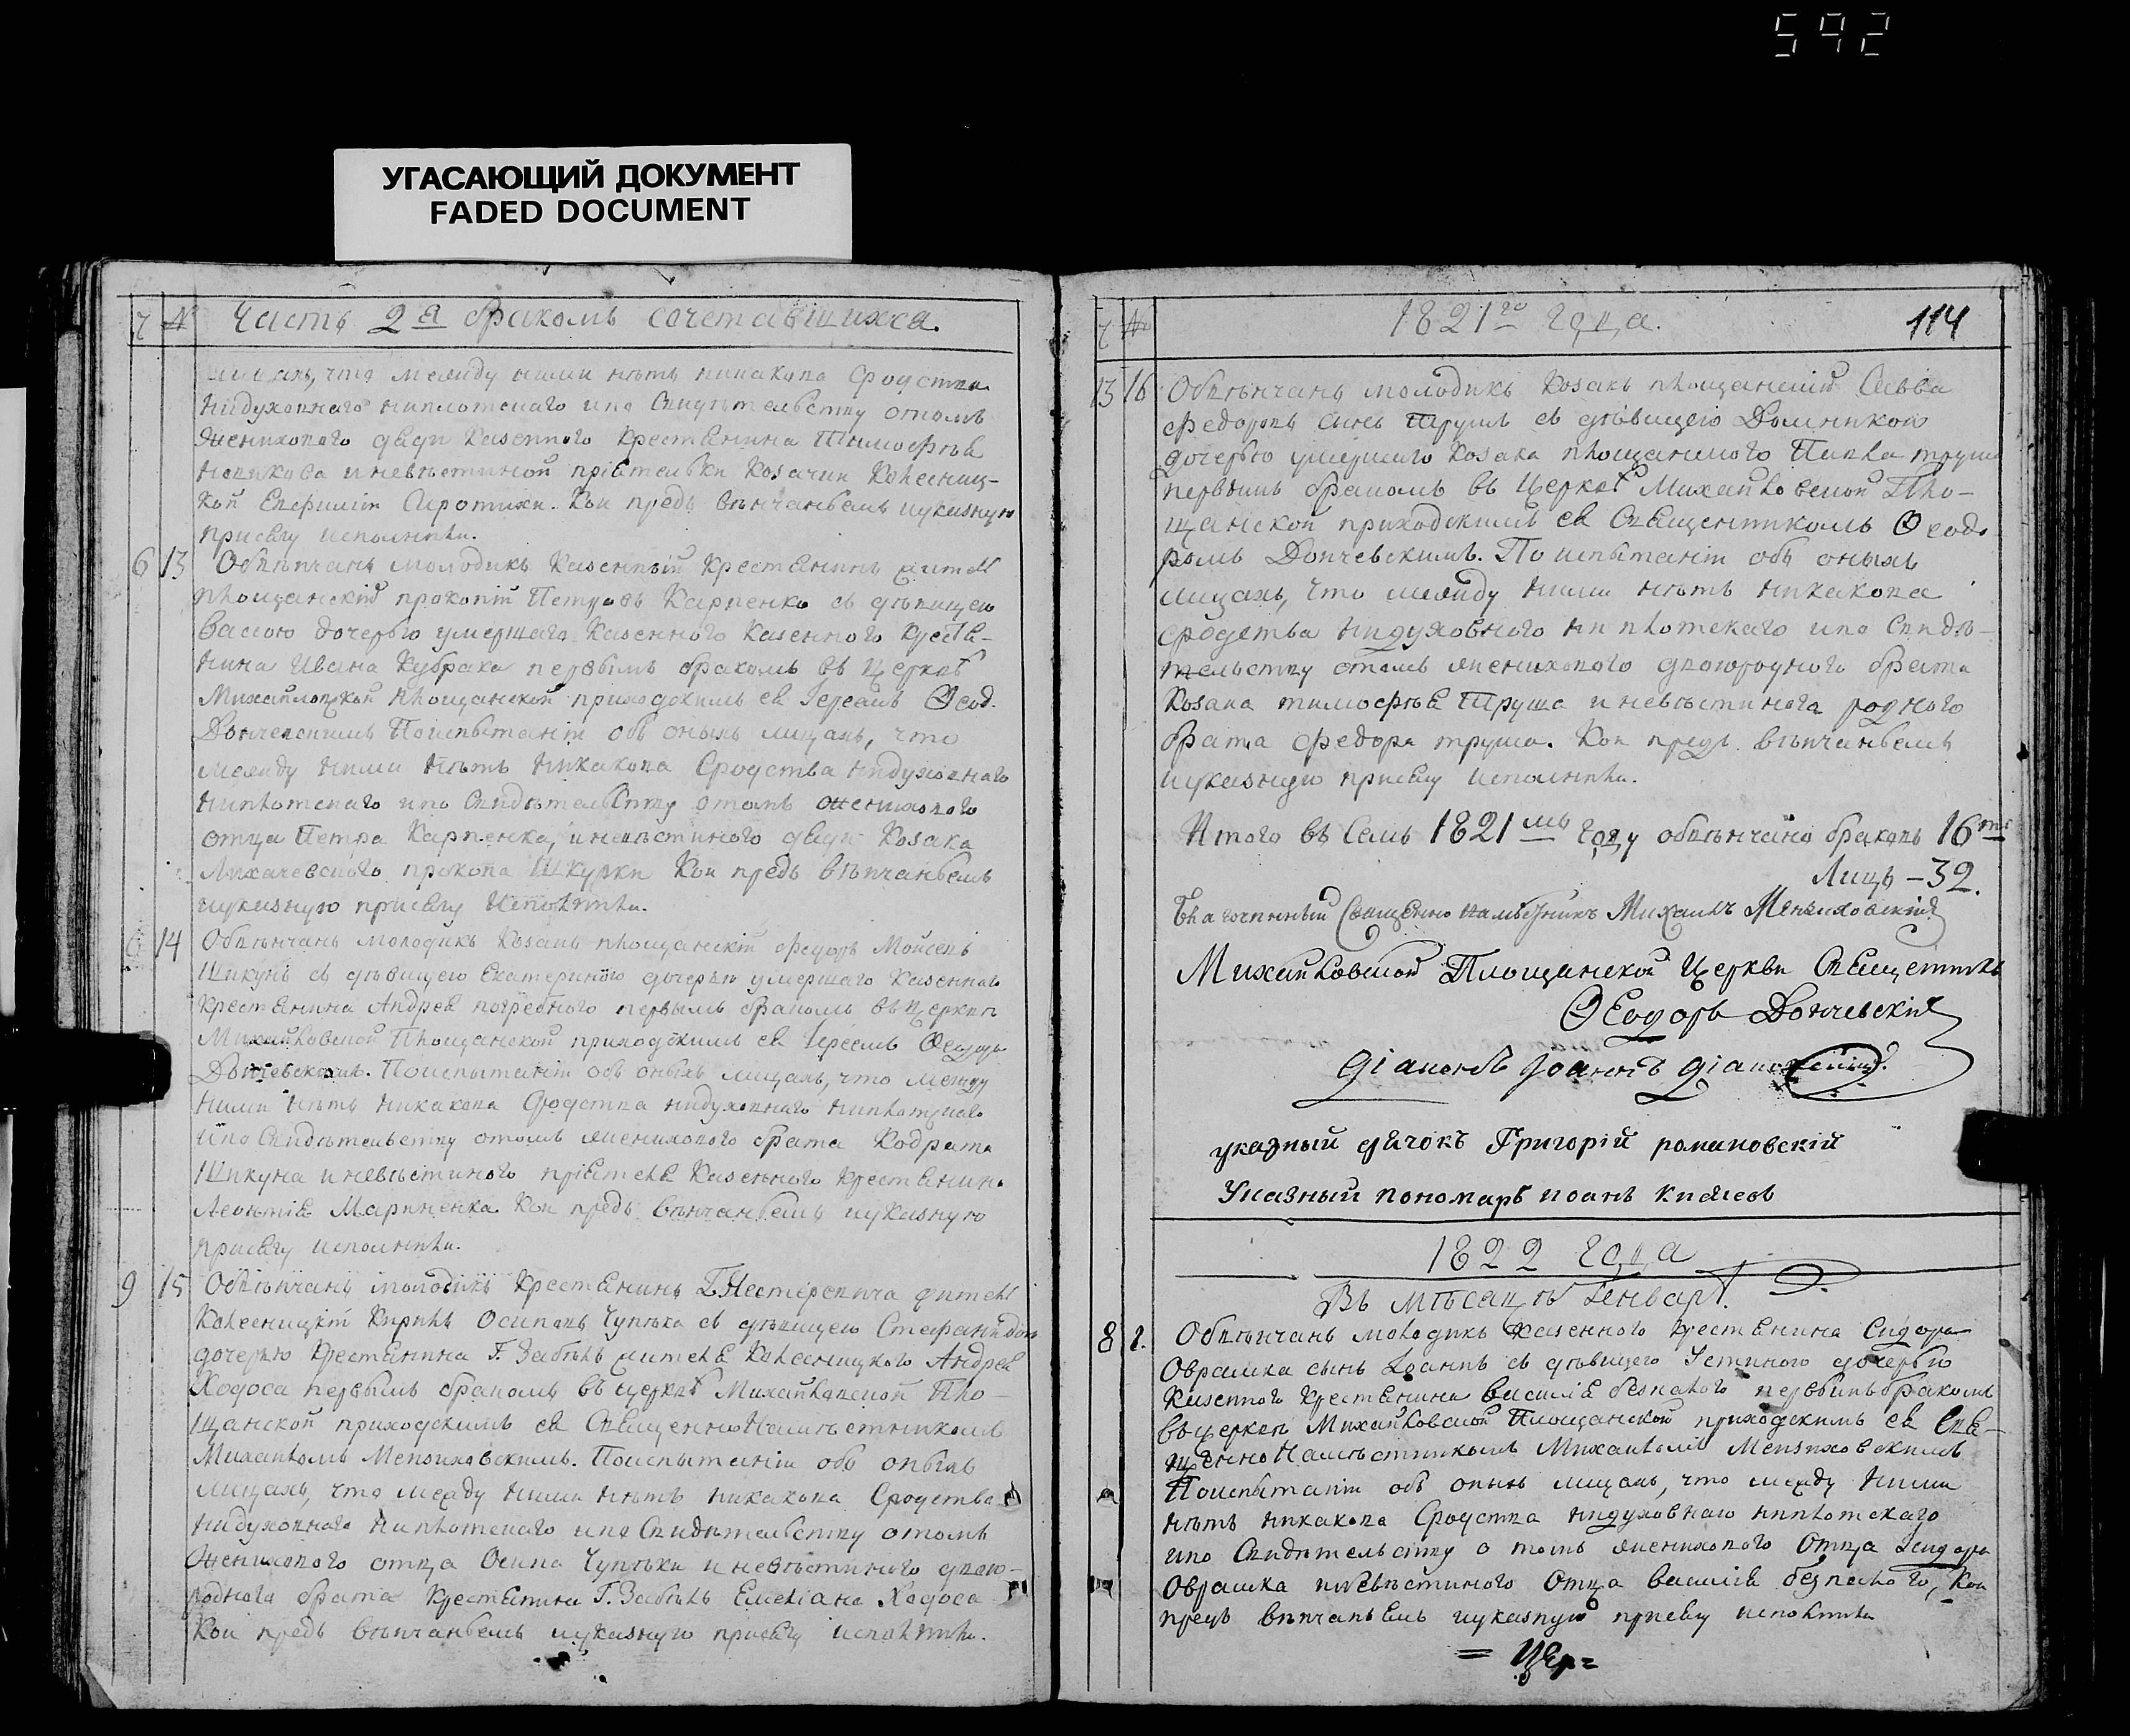 592
УГАСАЮЩИЙ ДОКУМЕНТ
FADED DOCUMENT
Часть 2я бракомъ сочетавшихся.
лицахъ, что между ними нѣтъ никакова сродства
нидуховнаго ниплотскаго ипо Свидѣтельству отомъ
женихового дяди казенного крестянина Тимофѣя
Новикова иневѣстиной пріятельки козачки
Кои предъ вѣнчаніемъ
присягу исполнили.
6 13 Обвѣнчанъ молодикъ казенный крестянинъ жител
площанскій прокопій Петровъ Карпенко съ дѣвицею
Вассою дочерью умершаго казенного казенного крестя-
нина Ивана Кубрака первымъ бракомъ въ церкви
Михайловской площанской приходскимъ ея Іереемъ Ѳеод.
Дончевскимъ Поиспытаніи объ оныхъ лицахъ, что
между ними нѣтъ никакова Сродства нидуховнаго
ниплотскаго ипо Свидѣтельству отомъ женихового
отца Петра Карпенка, иневѣстиного дяди козака
Лихачевского прокопа Шкурки Кои предъ вѣнчаніемъ
присягу исполнили.
14 Обвѣнчанъ молодикъ козакъ площанскій федоръ Мойсеевъ
Шикунъ съ дѣвицею Екатериною дочерью умершаго казенного
крестянина Андрея погребного первымъ бракомъ въ церкви
Михайловской Площанской приходскимъ ея Іереемъ Ѳеодоромъ
Дончевскимъ. Поиспытаніи объ оныхъ лицахъ, что между
ними нѣтъ никакова Сродства нидуховнаго ниплотскаго
ипо Свидѣтельству отомъ женихового брата Кодрата
Шикуна иневѣстиного пріятеля казенного крестянина
Леонтія Мариненка Кои предъ вѣнчаніемъ
присягу исполнили.
9 15 Обвѣнчанъ молодикъ крестянинъ Г. Нестеровича жител
Осиповъ съ дѣвицею Стефанидою
дочерью крестянина Г. Забѣлъ жителя Андрея
Ходоса первымъ бракомъ въ церкви Михайловской Пло-
щанской приходскимъ ея СвященноНамѣстникомъ
Михаиломъ Мензиховскимъ. Поиспытаніи объ оныхъ
лицахъ, что между ними нѣтъ никакова Сродства
нидуховнаго ниплотскаго ипо Свидѣтельству отомъ
женихового отца Осипа иневѣстиного двою-
родного брата крестянина Г. Забѣлъ Емеліана Ходоса
Кои предъ вѣнчаніемъ присягу исполнили.
1821го года. 114
13 16 Обвѣнчанъ молодикъ козакъ площанскій Савва
федоровъ сынъ Трушъ съ дѣвицею Домникою
дочерью умершаго козака площанского Павла труша
первымъ бракомъ въ Церкви Михайловской Пло-
щанской приходскимъ ея Священникомъ Ѳеодо
ромъ Дончевскимъ. По испытаніи объ оныхъ
лицахъ, что между ними нѣтъ никакова
сродства нидуховного ни плотскаго ипо Свидѣ-
тельству отомъ женихового двоюродного брата
козака тимофѣя Труша иневѣстинога родного
брата федора труша. Кои предъ вѣнчаніемъ
присягу исполнили.
Итого въ Семъ 1821мъ году обвѣнчано браковъ 16ть
Лицъ - 32.
Благочинный Священно намѣстникъ Михаилъ Мензиховскій
Михайловской Площанской Церкви Священникъ
Ѳеодоръ Дончевскій
діаконъ Іоаннъ
указный дячокъ Григорій романовскій
Указный пономарь иоанъ
1822 года
Въ мѣсацѣ Генварѣ.
8 1. Обвѣнчанъ молодикъ казенного крестянина Сидора
Оврамка сынъ Іоаннъ съ дѣвицею Устиною дочерью
казенного крестянина василія безпалого первымъ бракомъ
въ церкви Михайловской Площанской приходскимъ ея Свя-
щенно Намѣстникомъ Михаиломъ Мензиховскимъ
Поиспытаніи объ оныхъ лицахъ, что между ними
нѣтъ никакова Сродства нидуховнаго ниплотскаго
ипо Свидѣтельству о томъ женихового Отца Сидора
Оврамка иневѣстиного Отца василія безпалого, кои
предъ вѣнчаніемъ присягу исполнили
= Цер =